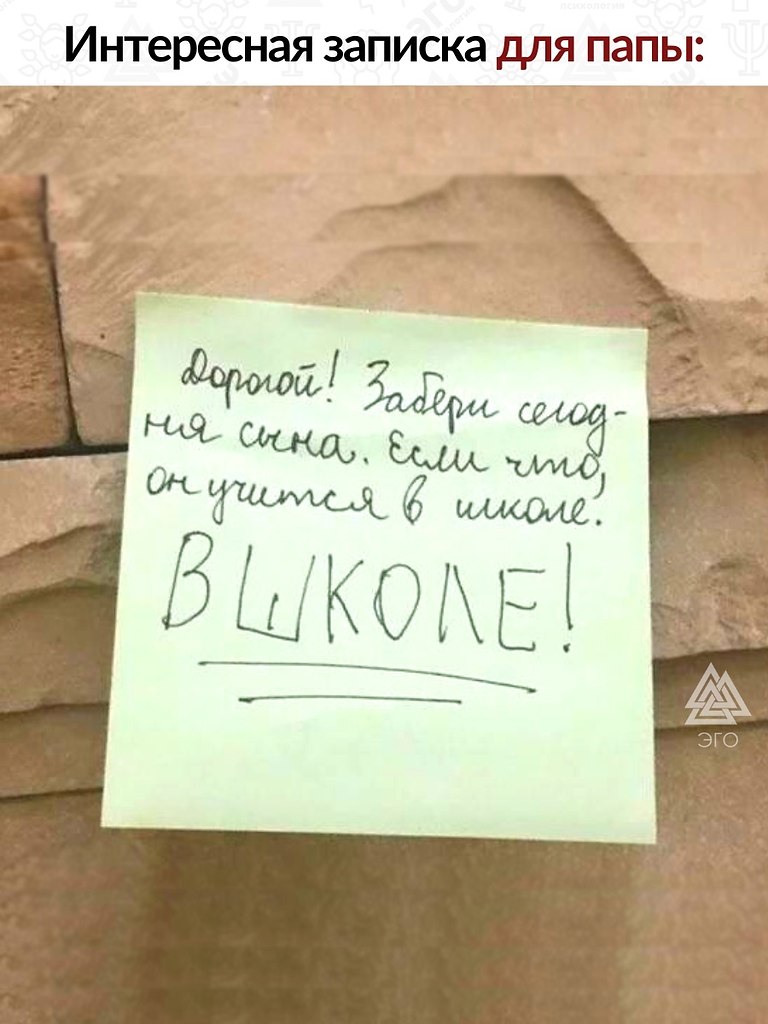 Интересная записка для папы:
Дорогой! Забери сегод-
ня сына. Если что,
он учится в школе.
В ШКОЛЕ!
ЭГО